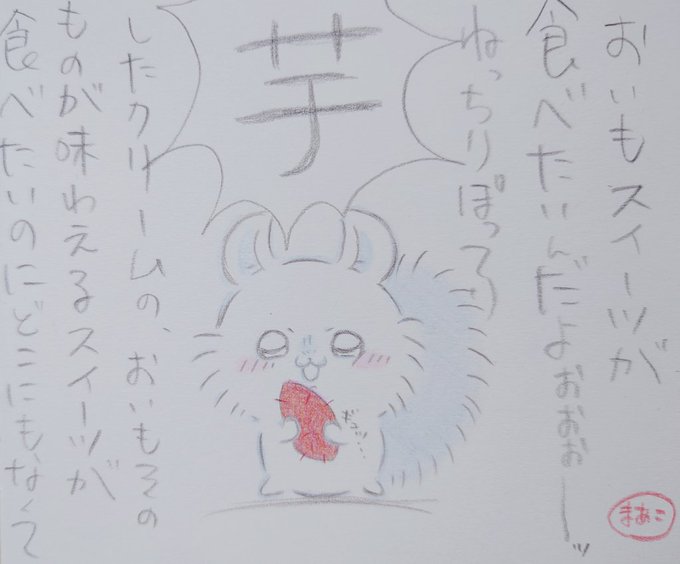 おいもスイーツが
食べたいんだよぉぉぉーーッ
ねっちりぽってり
したクリームの、おいもその
ものが味わえるスイーツが
食べたいのにどこにもなくて
芋
ギュッ…
まあこ